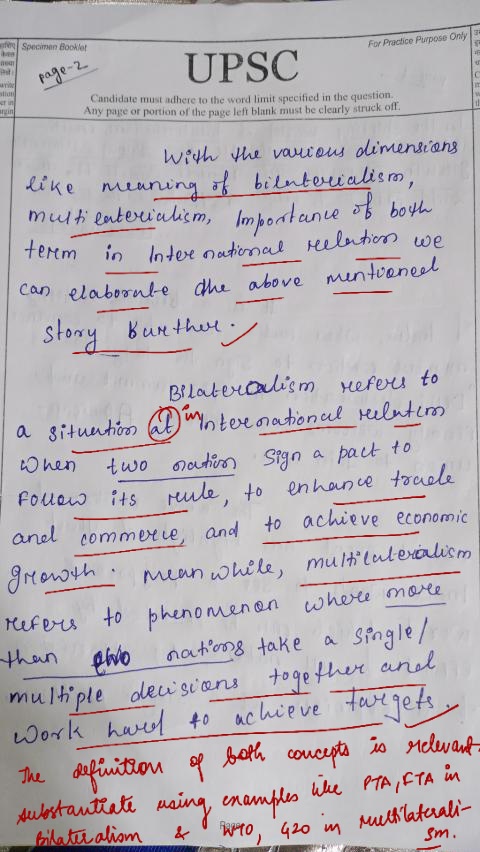 Specimen Booklet
For Practice Purpose Only
Page-2
UPSC
Candidate must adhere to the word limit specified in the question.
Any page or portion of the page left blank must be clearly struck off.
With the various dimensions
like meaning of bilaterialism,
multilaterialism, Importance of both
term in International relation we
can elaborate the above mentioned
story further.
Bilateralism refers to
a situation at in International relation
when two nation sign a pact to
follow its rule, to enhance trade
and commerce, and to achieve economic
growth. Meanwhile, multilaterialism
refers to phenomenon where more
than two nations take a single/
multiple decisions together and
work hard to achieve targets.
The definition of both concepts is relevant.
substantiate using examples like PTA, FTA in
Bilateralism & WTO, G20 in Multilaterali-
sm.